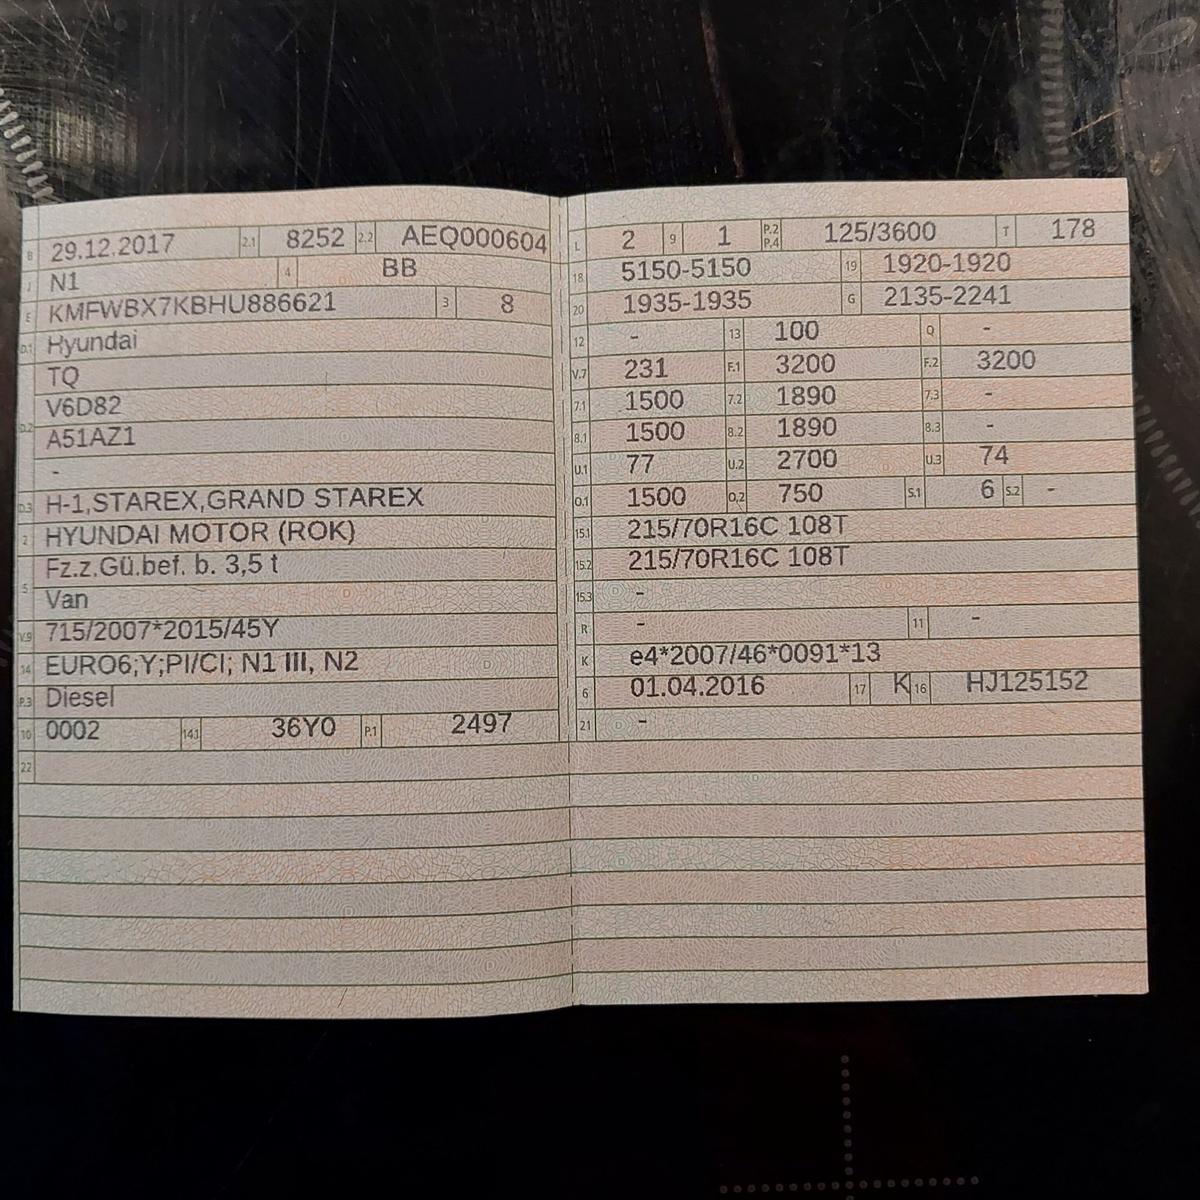 B 29.12.2017 2.1 8252 2.2 AEQ000604
J N1 4 BB
E KMFWBX7KBHU886621 3 8
D.1 Hyundai
TQ
D.2 V6D82
A51AZ1
-
D.3 H-1,STAREX,GRAND STAREX
2 HYUNDAI MOTOR (ROK)
5 Fz.z.Gü.bef. b. 3,5 t
Van
V.9 715/2007*2015/45Y
14 EURO6;Y;PI/CI; N1 III, N2
P.3 Diesel
10 0002 14.1 36Y0 P.1 2497
22
L 2 9 1 P.2 P.4 125/3600 T 178
18 5150-5150 19 1920-1920
20 1935-1935 G 2135-2241
12 - 13 100 Q -
V.7 231 F.1 3200 F.2 3200
7.1 1500 7.2 1890 7.3 -
8.1 1500 8.2 1890 8.3 -
U.1 77 U.2 2700 U.3 74
O.1 1500 O.2 750 S.1 6 S.2 -
15.1 215/70R16C 108T
15.2 215/70R16C 108T
15.3 -
R - 11 -
K e4*2007/46*0091*13
6 01.04.2016 17 K 16 HJ125152
21 -